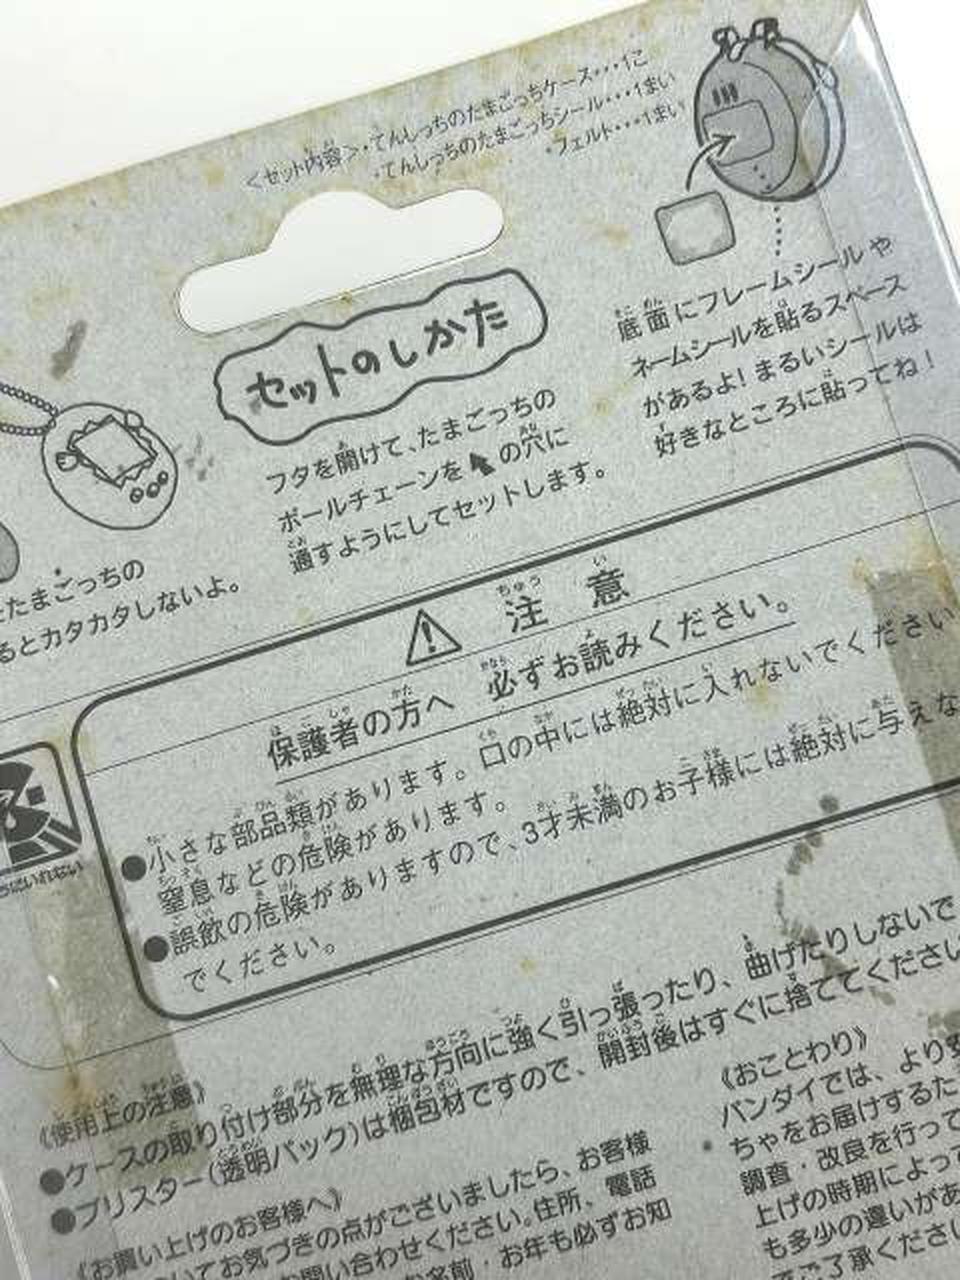 <セット内容>・てんしっちのたまごっちケース・・・1こ
・てんしっちのたまごっちシール・・・1まい
・フェルト・・・1まい
セットのしかた
フタを開けて、たまごっちの
ボールチェーンを の穴に
通すようにしてセットします。
底面にフレームシールや
ネームシールを貼るスペース
があるよ!まるいシールは
好きなところに貼ってね!
たまごっちの
るとカタカタしないよ。
注意
保護者の方へ 必ずお読みください。
●小さな部品類があります。口の中には絶対に入れないでください
窒息などの危険があります。
●誤飲の危険がありますので、3才未満のお子様には絶対に与えな
でください。
《使用上の注意》
●ケースの取り付け部分を無理な方向に強く引っ張ったり、曲げたりしないで
●ブリスター(透明パック)は梱包材ですので、開封後はすぐに捨ててください
《お買い上げのお客様へ》
いてお気づきの点がございましたら、お客様
お問い合わせください。住所、電話
お名前・お年も必ずお知
《おことわり》
バンダイでは、より安
ちゃをお届けするた
調査・改良を行って
上げの時期によって
も多少の違いがあ
ご了承ください